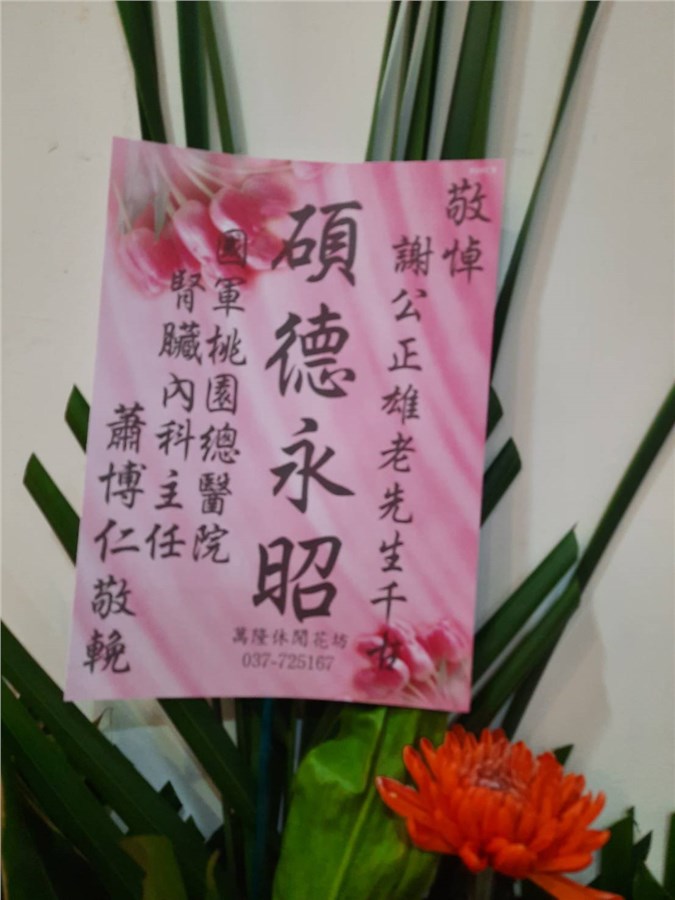 敬悼
謝公正雄老先生千古
碩德永昭
國軍桃園總醫院
腎臟內科主任
蕭博仁敬輓
萬隆休閒花坊
037-725167